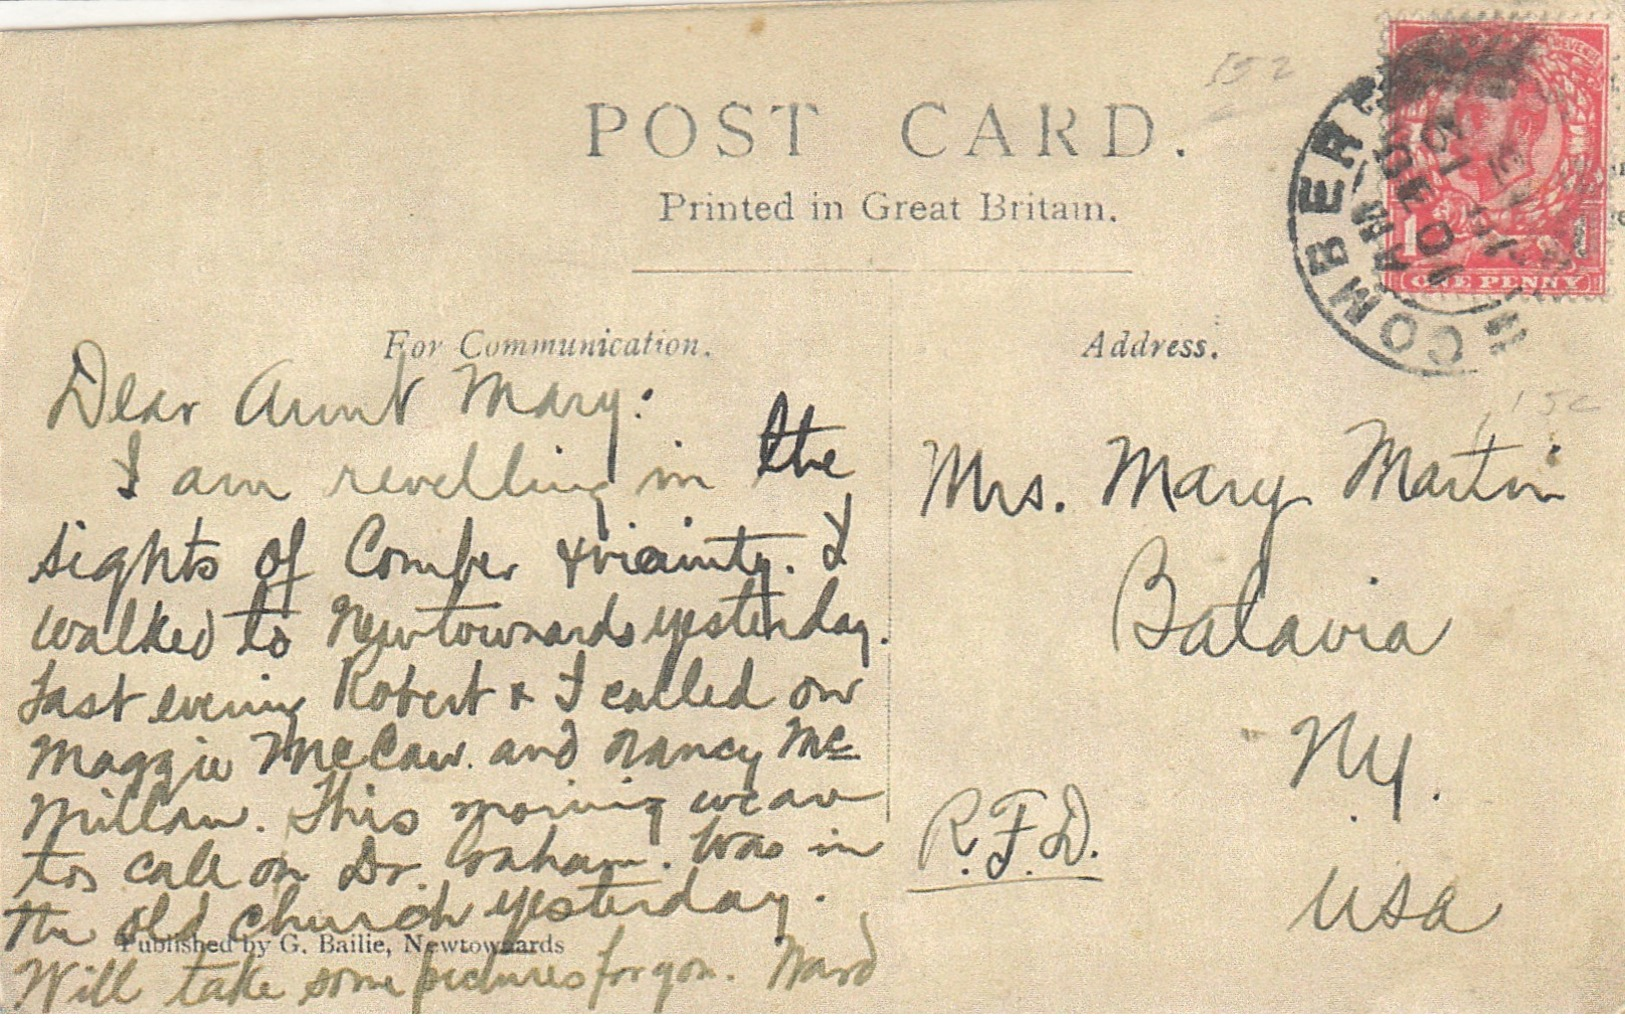 152
POST CARD.
Printed in Great Britain.
COMBER
AM
10 SE
12
ONE PENNY
For Communication.
Address.
15c
Dear Aunt Mary:
I am revelling in the
sights of Comber & viainty. I
walked to Newtownards yesterday.
Last evening Robert & I called on
Maggie McCaw and Nancy Mc
Millan. This morning we are
to call on Dr. Graham. Was in
the old church yesterday.
Will take some pictures for you. Ward
Published by G. Bailie, Newtownards
Mrs. Mary Martin
Batavia
N.Y.
R.F.D.
USA